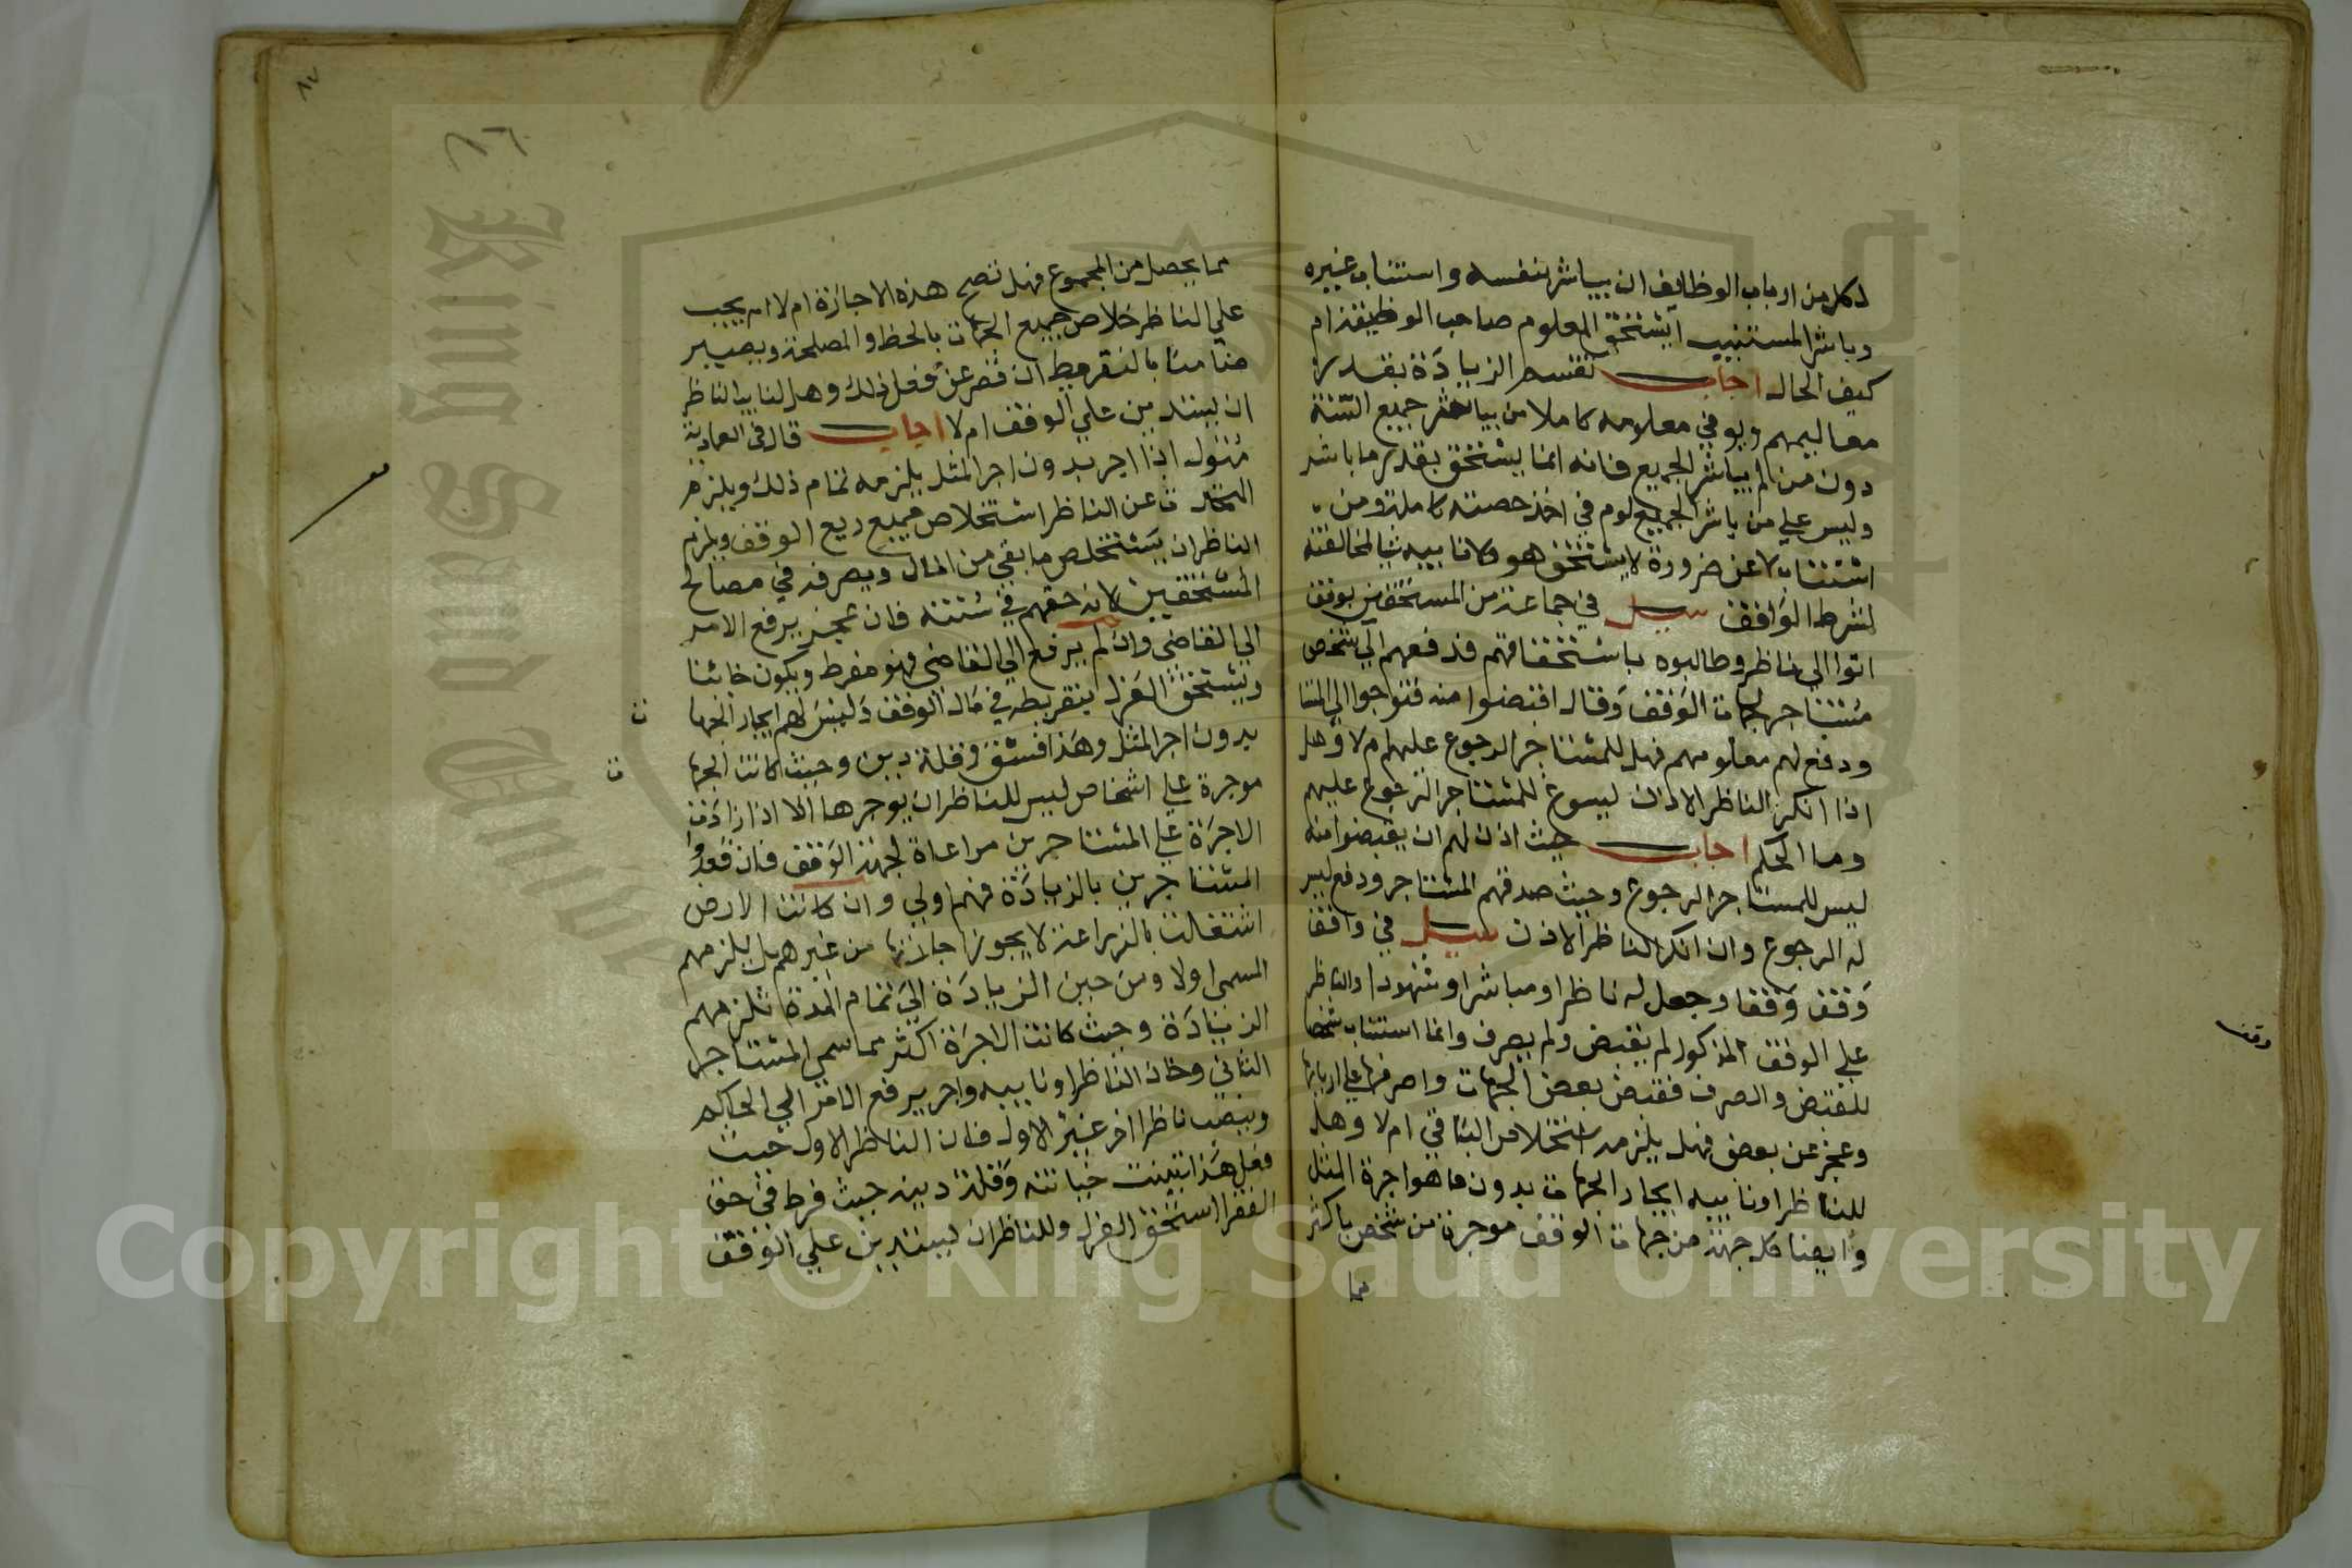 لكل من ارباب الوظايف ان يباشر بنفسه واستناب غيره
وباشر المستنيب ايستحق المعلوم صاحب الوظيفة ام
كيف الحال اجاب تقسم الزيادة بقدر
معاليمهم ويوفي معلومه كاملا من يباشر جميع السنة
دون من لم يباشر الجميع فانه انما يستحق بقدر ما باشر
وليس علي من باشر الجميع لوم في اخذ حصته كاملة ومن
استناب لا عن ضرورة لا يستحق هو ولا نايبه شيا لمخالفته
لشرط الواقف سيل في جماعة من المستحقين بوقف
اتوا الي ناظر وطالبوه باستحقاقهم فدفعهم الي شخص
مستاجر لجهات الوقف وقال اقبضوا منه فتوجوا الي المستا
ودفع لهم معلومهم فهل للمستاجر الرجوع عليهم ام لا وهل
اذا انكر الناظر الاذن ليسوغ للمستاجر الرجوع عليهم
وما الحكم اجاب حيث اذن لهم ان يقبضوا منه
ليس للمستاجر الرجوع وحيث صدقهم المستاجر ودفع ليس
له الرجوع وان انكر الناظر الاذن سيل في واقف
وقف وقفا وجعل له ناظرا ومباشرا وشهودا والناظر
علي الوقف المذكور لم يقبض ولم يصرف وانما استناب شخصا
للقبض والصرف فقبض بعض الجهات واصرفها علي اربابها
وعجز عن بعض فهل يلزمه استخلاص الباقي ام لا وهل
للناظر او نايبه ايجار الجهات بدون ما هو اجرة المثل
وايضا كل جهة من جهات الوقف موجرة من شخص باكثر
مما
وقف
٨٧
مما يحصل من المجموع فهل تصح هذه الاجازة ام لا ام يجب
علي الناظر خلاص جميع الجهات بالحظ والمصلحة ويصير
ضامنا بالتفريط ان قصر عن فعل ذلك وهل لنايب الناظر
ان يستدين علي الوقف ام لا اجاب قال في العمادية
متول اذا اجر بدون اجر المثل يلزمه تمام ذلك ويلزم
عن الناظر استخلاص جميع ريع الوقف ويلزم
الناظر ان يستخلص ما بقي من المال ويصرفه في مصالح
المستحقين لانه حقهم في سنته فان عجز يرفع الامر
الي القاضي وان لم يرفع الي القاضي فهو مفرط ويكون خائنا
ويستحق العزل بتفريطه في مال الوقف وليس لهم ايجار الجها
ت
بدون اجر المثل وهذا فسق وقلة دين وحيث كانت الجها
ت
موجرة علي اشخاص ليس للناظر ان يوجرها الا اذا زادت
الاجرة علي المستاجرين مراعاة لجهة الوقف فان قعدوا
المستاجرين بالزيادة فهم اولي وان كانت الارض
اشتغلت بالزراعة لا يجوز اجازتها من غيرهم بل يلزمهم
المسمي اولا ومن حين الزيادة الي تمام المدة تلزمهم
الزيادة وحيث كانت الاجرة اكثر مما سمي المستاجر
الثاني وخان الناظر او نايبه واجر يرفع الامر الي الحاكم
وينصب ناظرا اخر غير الاول فان الناظر الاول حيث
فعل هذا تبينت خيانته وقلة دينه حيث فرط في حق
الفقرا استحق العزل وللناظر ان يستدين علي الوقف
Copyright © King Saud University
King Saud University